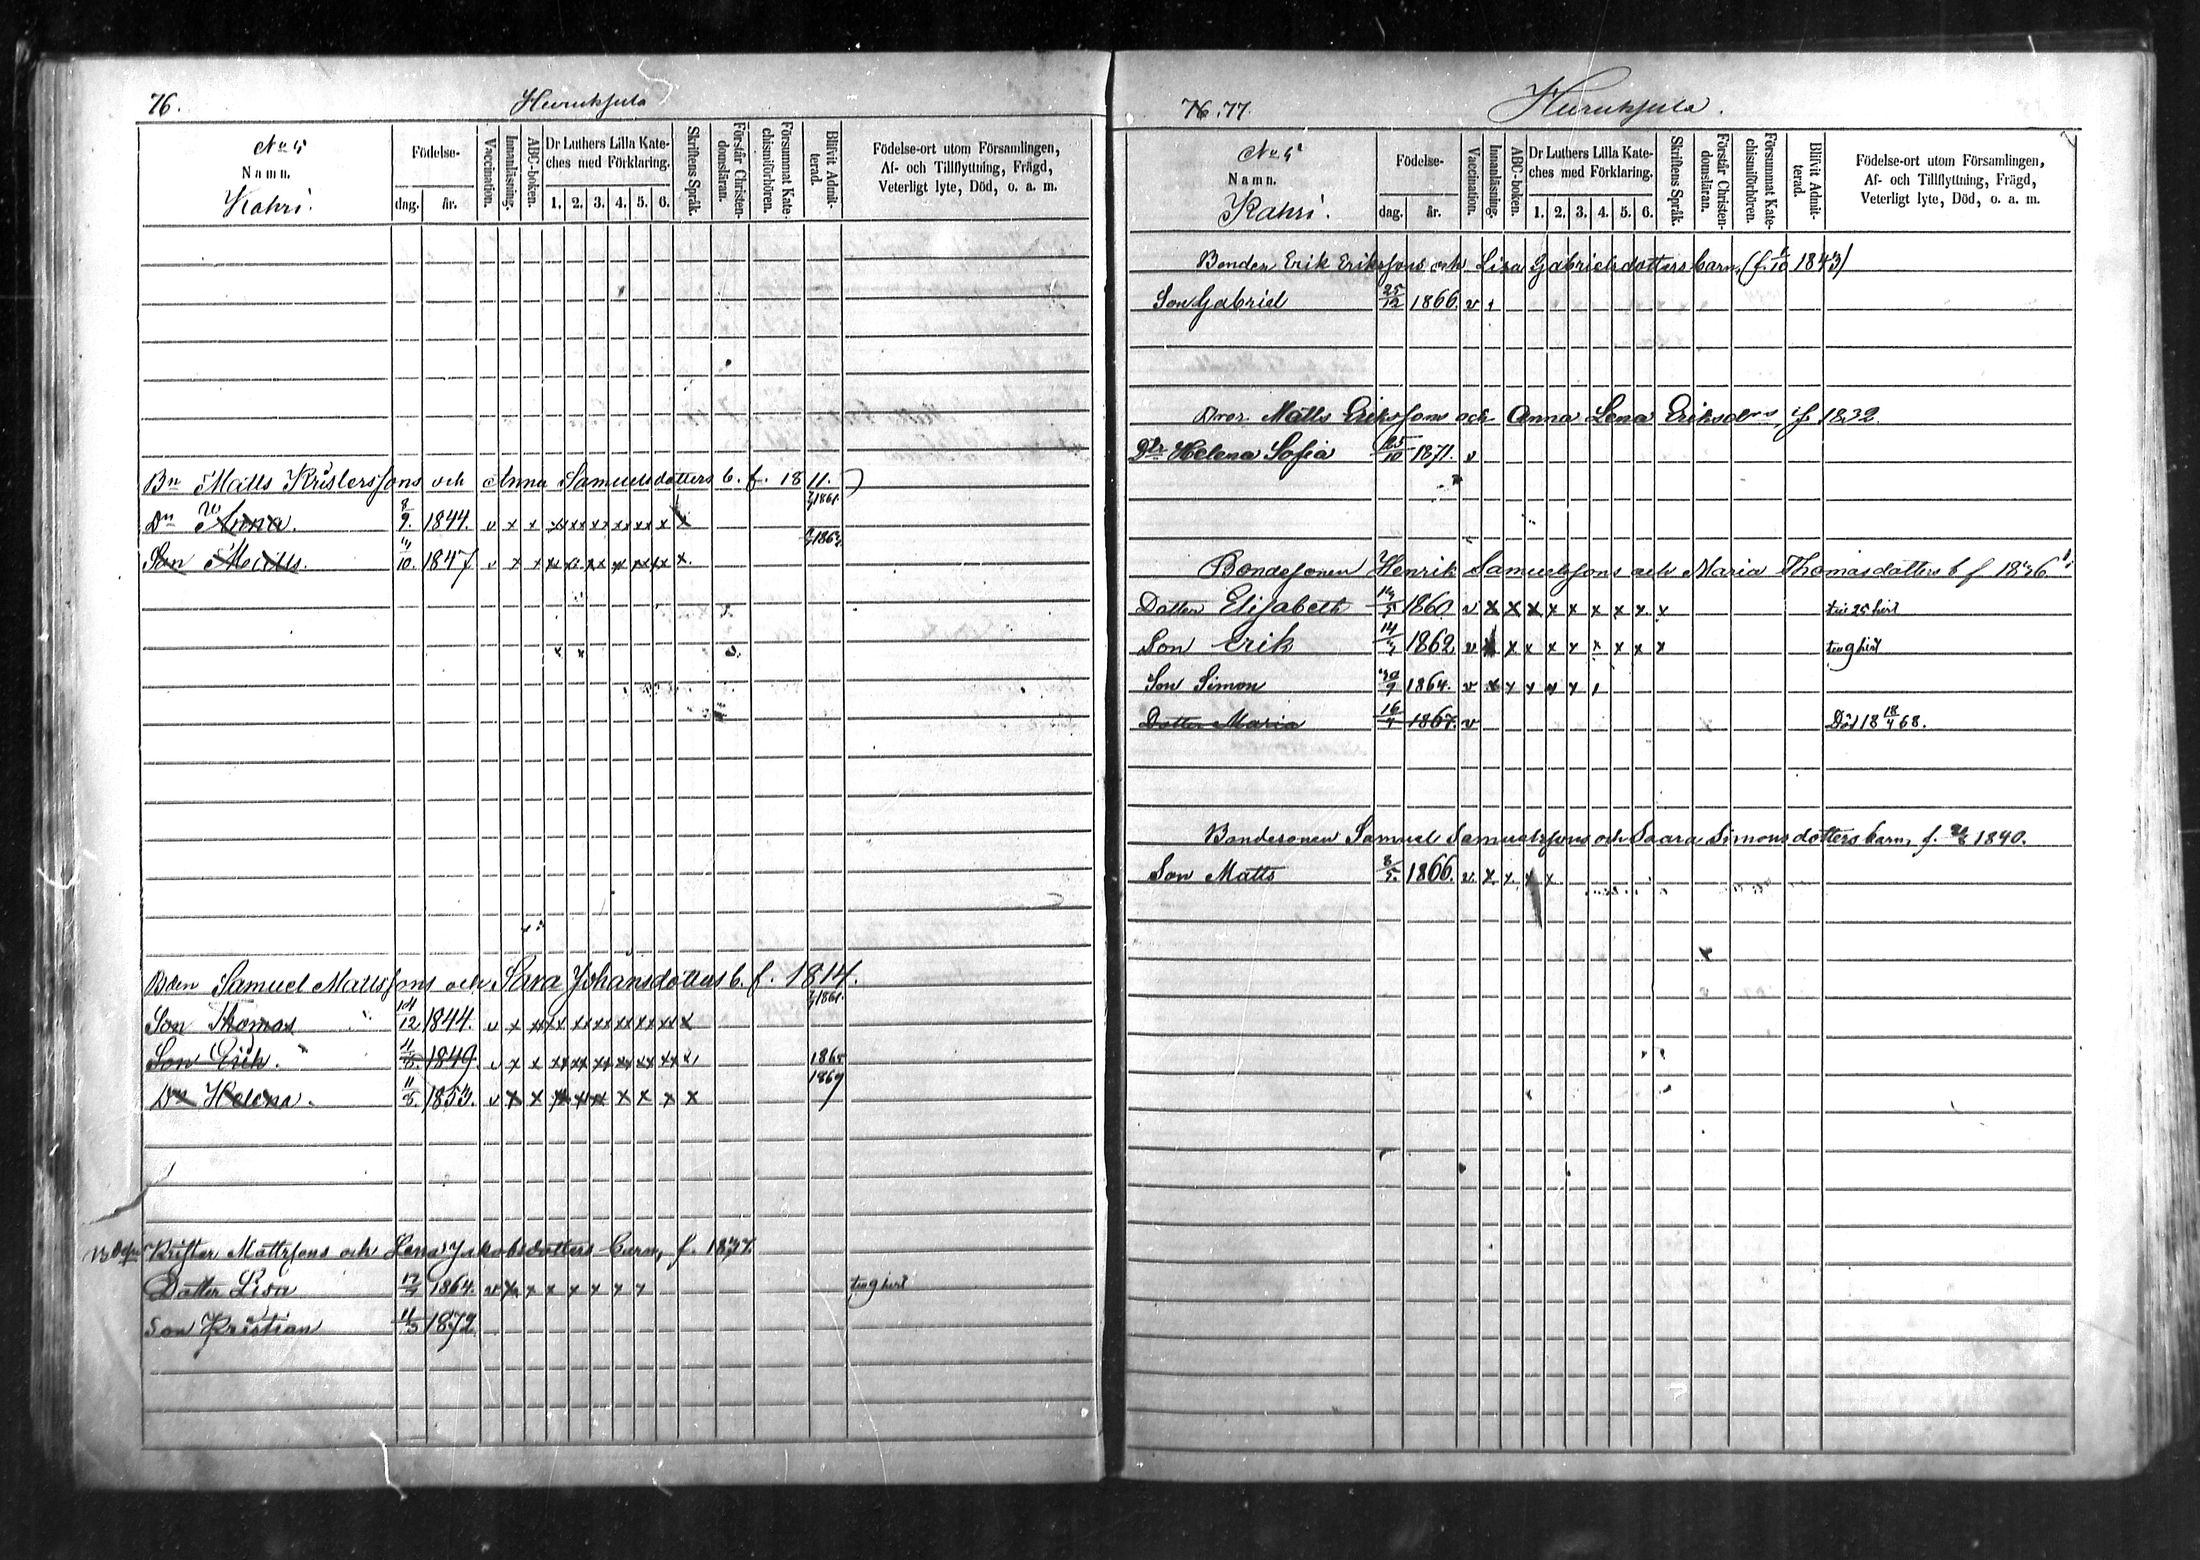 76.
Huruksela
No 5
Namn.
Kahri.
Födelse-
dag. år.
Vaccination.
Innanläsning.
ABC-boken.
Dr Luthers Lilla Kate-
ches med Förklaring.
1. 2. 3. 4. 5. 6.
Skriftens Språk.
Förstår Christen-
domsläran.
Försummat Kate-
chismiförhören.
Blifvit Admit-
terad.
Födelse-ort utom Församlingen,
Af- och Tillflyttning, Frägd,
Veterligt lyte, Död, o. a. m.
Bn Matts Kristerssons och Anna Samuelsdotters b. f. 1811.
Dn Anna. 8/9. 1844. v x x xx xx xx xx xx x x 1861.
Son Matts. 10. 1847 v x x x x x x x
Bden Samuel Mattssons och Sara Johansdotters b. f. 1814.
Son Thomas 14/12 1844. v x xx xx xx xx xx xx xx x 1861.
Son Erik. 1849. v x x xx xx xx xx xx xx x 1865
Dn Helena. 11/5. 1853. v x x x x x x x x x 1869
Krister Mattssons och Lena Jakobsdotters barn, f. 1837.
Dotter Lisa 1864. v x x x x x x x
Son Kristian 1872
76. 77.
Huruksela.
No 5
Namn.
Kahri.
Födelse-
dag. år.
Vaccination.
Innanläsning.
ABC-boken.
Dr Luthers Lilla Kate-
ches med Förklaring.
1. 2. 3. 4. 5. 6.
Skriftens Språk.
Förstår Christen-
domsläran.
Försummat Kate-
chismiförhören.
Blifvit Admit-
terad.
Födelse-ort utom Församlingen,
Af- och Tillflyttning, Frägd,
Veterligt lyte, Död, o. a. m.
Bonden Erik Erikssons och Lisa Gabrielsdotters barn, (f. 1843)
Son Gabriel 25/12 1866. v
Matts Erikssons och Anna Lena Eriksdrs, f 1832.
Dtr Helena Sofia 25/10 1871. v
Bondesonen Henrik Samuelssons och Maria Thomasdotters b f 1836
Dotter Elisabeth 1860. v x x x x x x x x x
Son Erik 14 1862. v x x x x x x x x x
Son Simon 30/9 1864. v x x x x x
Dotter Maria 16 1867. v Död 18 18/4 68.
Bondesonen Samuel Samuelssons och Saara Simonsdotters barn, f. 1840.
Son Matts 8/5. 1866. v x x x x